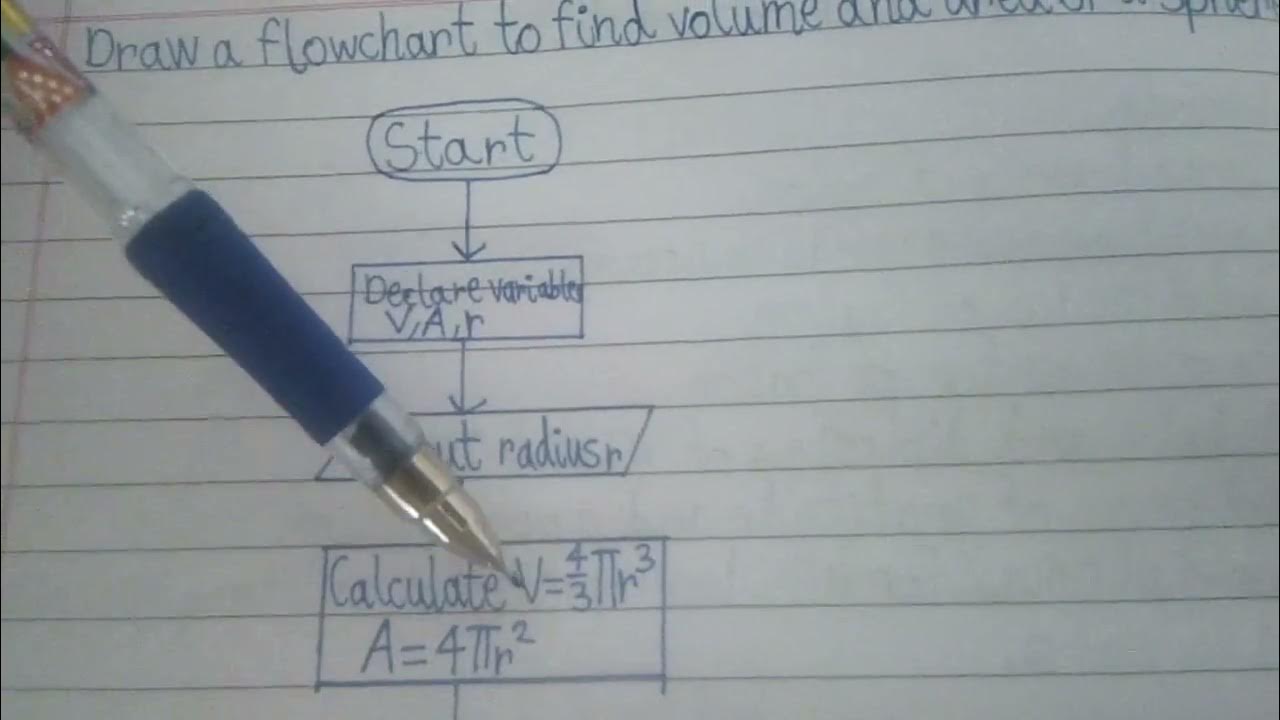 Draw a flowchart to find volume and area of a
Start
Declare variables
V, A, r
radius r
Calculate V = 4/3 πr³
A = 4πr²